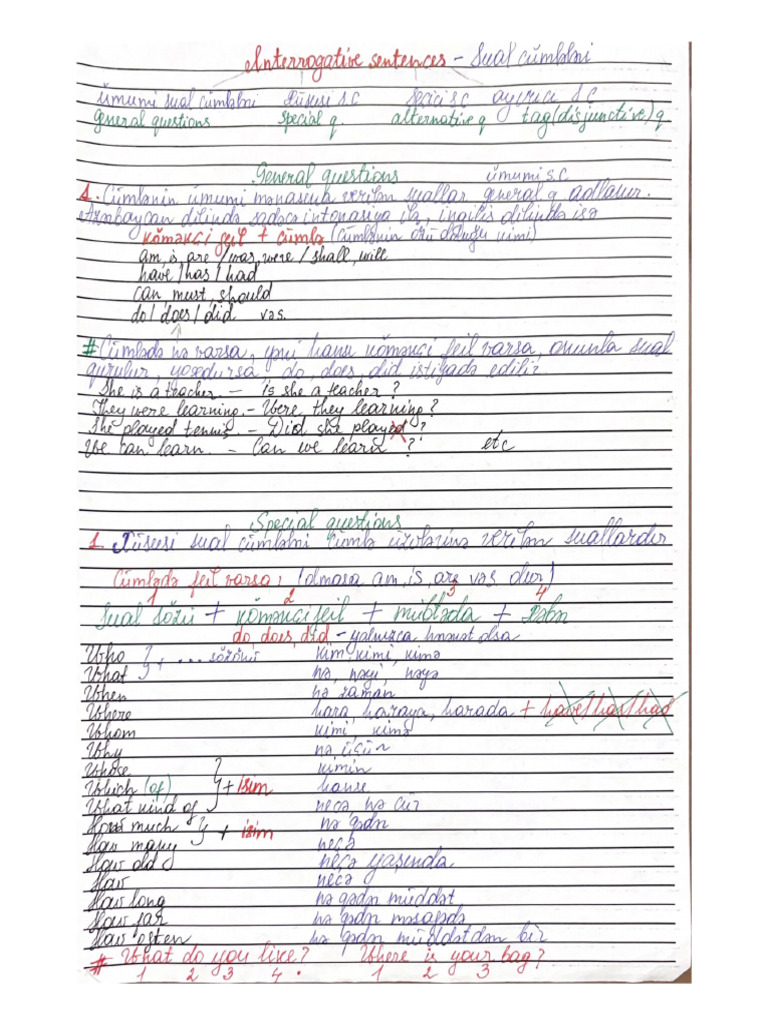 Interrogative sentences - Sual cümlələri
Ümumi sual cümlələri Xüsusi s.c Seçici s.c ayırıcı s.c
General questions special q. alternative q tag(disjunctive) q
General questions ümumi s.c
1. Cümlənin ümumi mənasına verilən suallar general q adlanır.
Azərbaycan dilində sadəcə intonasiya ilə, ingilis dilində isə
köməkçi feil + cümlə (cümlənin özü olduğu kimi)
am, is, are / was, were / shall, will
have / has / had
can, must, should
do / does / did. vəs.
# Cümlədə nə varsa, yəni hansı köməkçi feil varsa, onunla sual
qurulur, yoxdursa do, does, did istifadə edilir.
She is a teacher - is she a teacher?
They were learning. - Were they learning?
She played tennis. - Did she played?
We can learn. - Can we learn? etc
Special questions
1. Xüsusi sual cümlələri cümlə üzvlərinə verilən suallardır
Cümlədə feil varsa, (olmasa am, is, are vəs. olur)
1 2 3 4
Sual sözü + köməkçi feil + mübtəda + xəbər
do, does, did - yalnızca olsa
Who } + ... sözönü kim, kimi, kimə
What nə, nəyi, nəyə
When nə zaman
Where hara, haraya, harada + have/has/had
Whom kimi, kimə
Why nə üçün
Whose kimin
Which (of) } + isim hansı
What kind of necə, nə cür
How much } + isim nə qədər
How many neçə
How old neçə yaşında
How necə
How long nə qədər müddət
How far nə qədər məsafədə
How often nə qədər müddətdən bir
# What do you like? Where is your bag?
1 2 3 4. 1 2 3